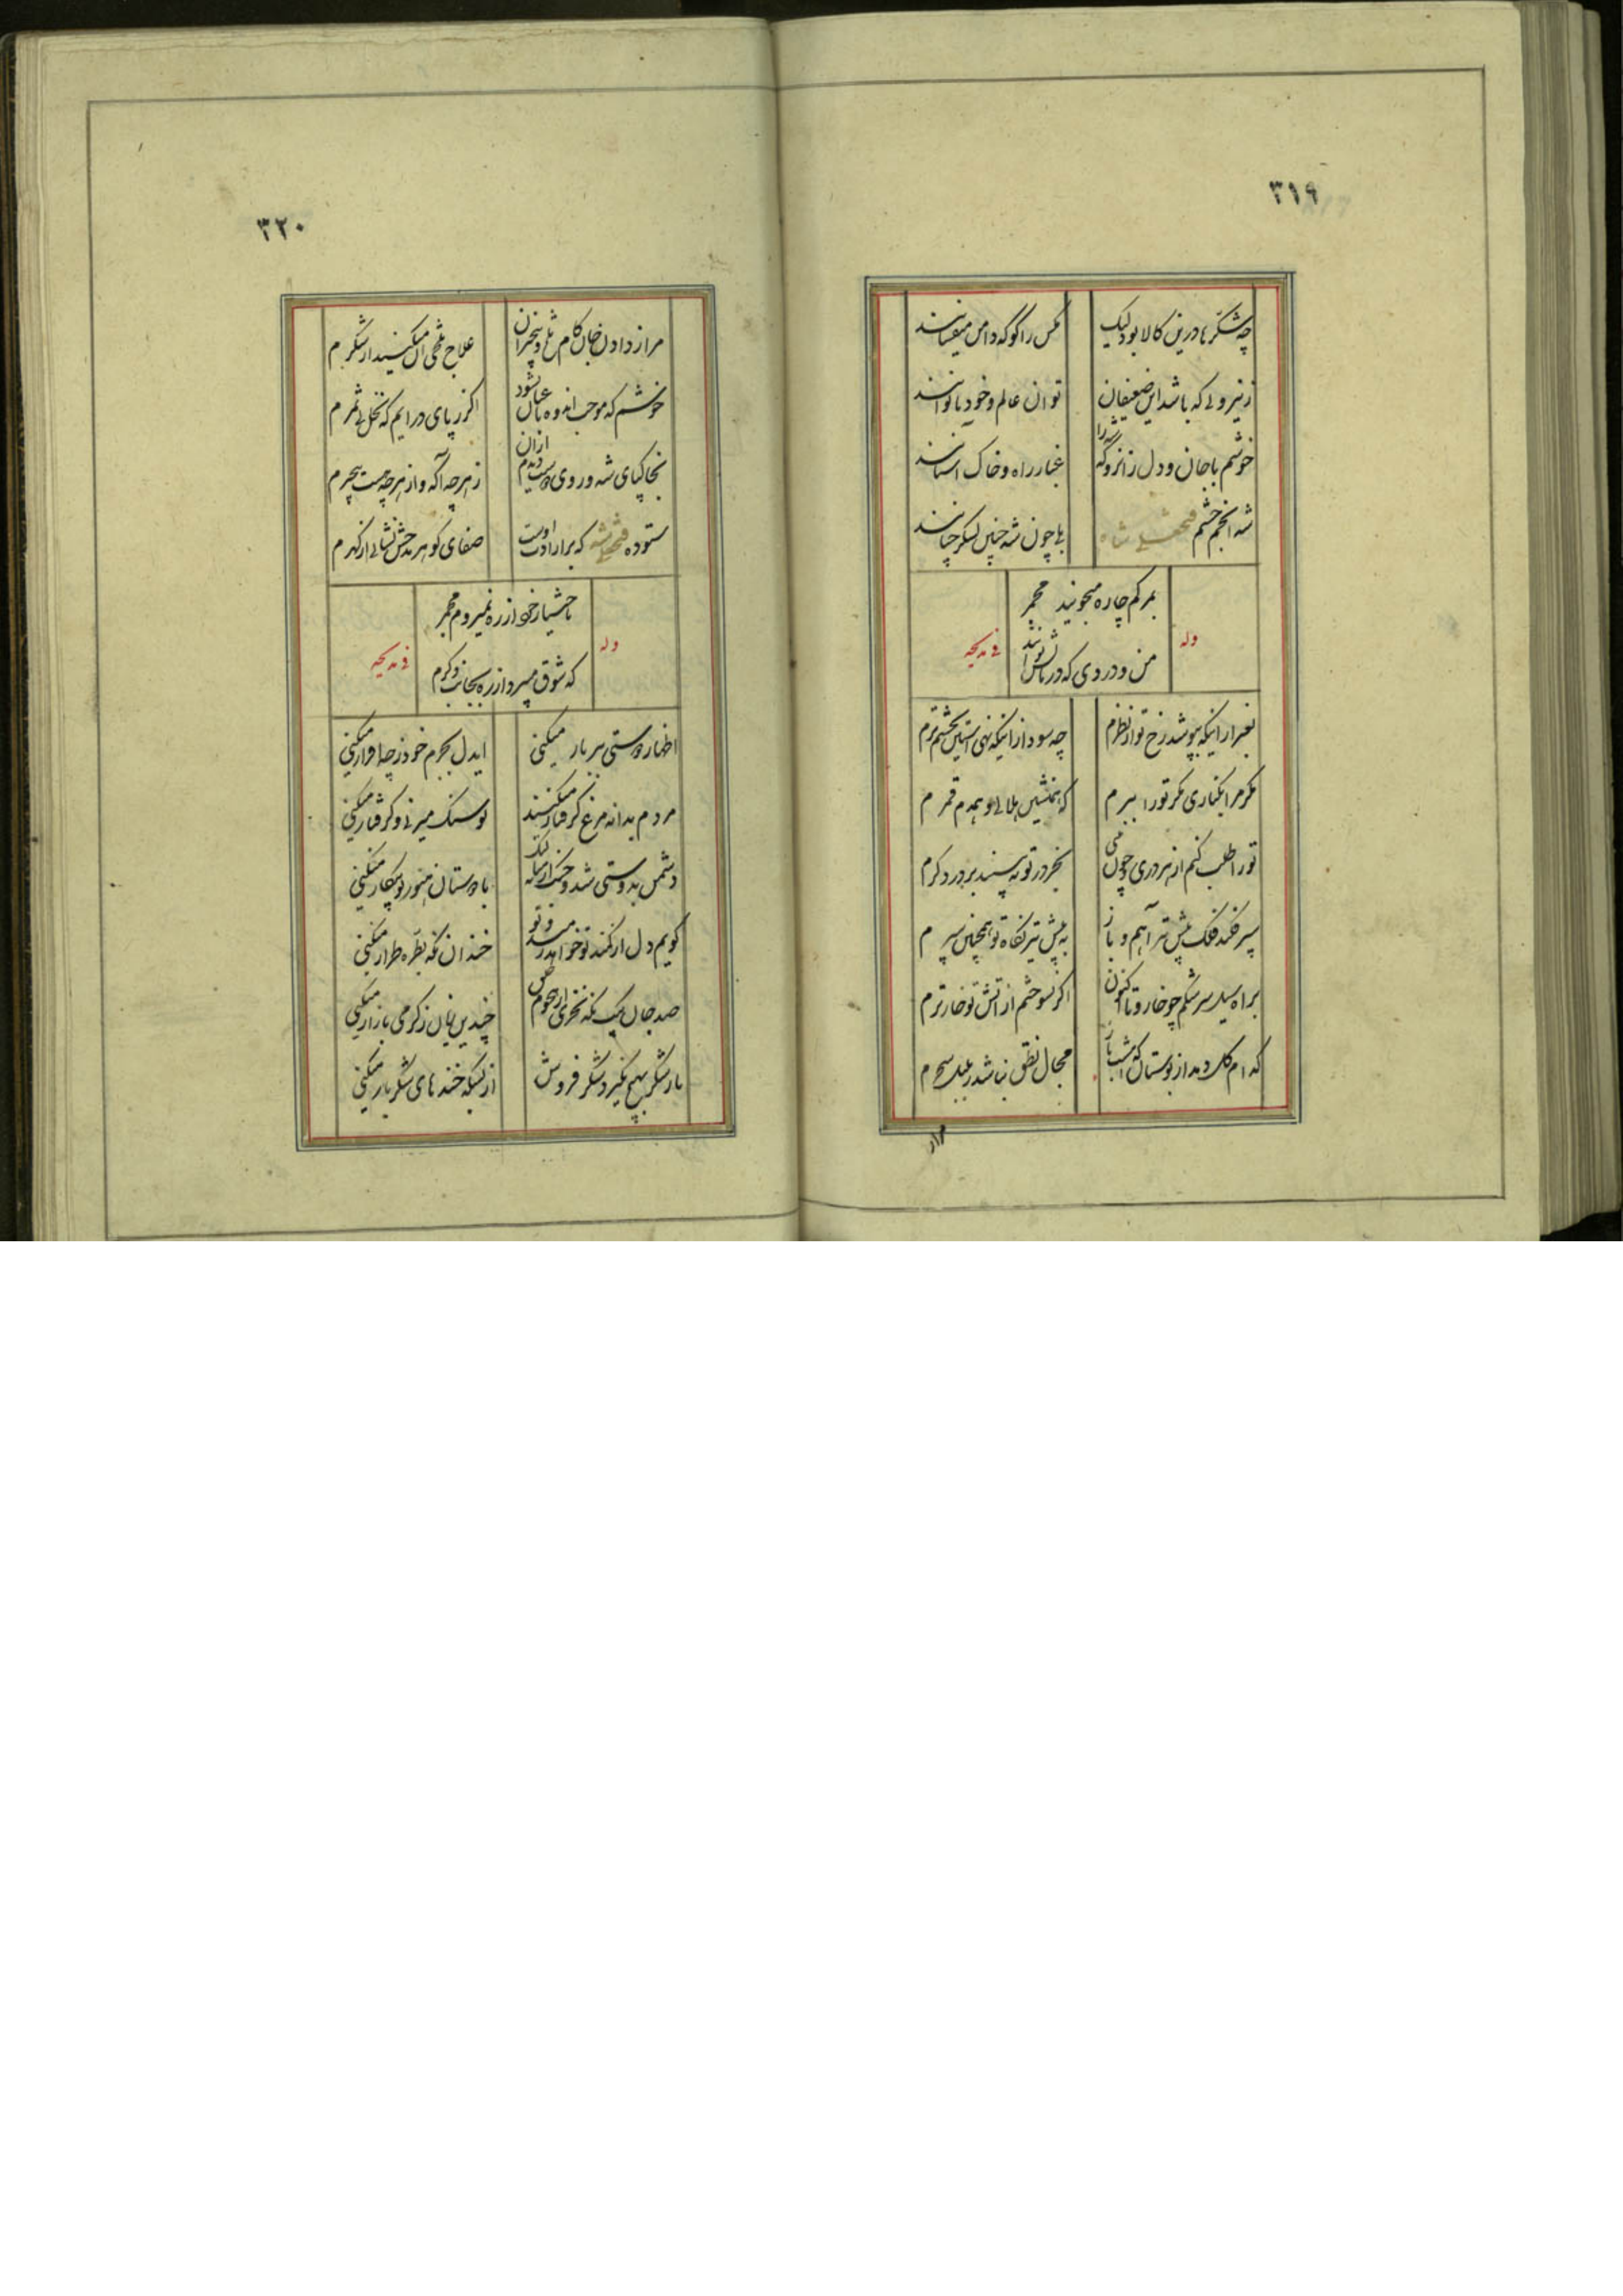 ٣١٩
چه شکرها درین کالا بود لیک
مکس را کو که دامن میفشانند
ز نیرویی که باشد این ضعیفان
توان عالم و خود ناتوانند
خوشم با جان و دل زانرو که شه را
غبار راه و خاک استانند
شه انجم حشم فتحعلی شاه
بلی چون شه چنین لشکر
بمرکم چاره میجویند مجمر
من و دردی که درمانش ندانند
وله
فی مدیحه
بغیر از اینکه بپوشد رخ تو از نظرم
چه سود از اینکه نهی استین بچشم ترم
مکر مرا بکناری مکر تو را ببرم
که همنشین هلالی و همدم قمرم
تو را طلب کنم از هر دری چون می
بجز در تو به در دکرم
سپر فکند فلک پیش تیر آهم و باز
به پیش تیر نکاه تو همچنان سپرم
براه سیل سرشکم چو خار و تا کنون
اکر نسوختم از اتش تو خار ترم
کدام کل دمد از بوستان که امشب باز
مجال نطق نباشد ز بلبل سحرم
مرا ز
٣٢٠
مرا ز دادن جان کام تلخ و بیخبران
علاج تلخی ان میکنید از شکرم
خوشم که موجب اندوه با عبان نشود
اکر ز پای در ایم که نخل بی ثمرم
بخاکپای شه و روی دوست دیدم ازان
ز هرچه آکه و از هرچه هست بیخبرم
ستوده فتحعلی شه که بر ارادت اوست
صفای کوهر مدحش نشانی از کهرم
باختیار خود از ره نمیروم مجمر
که شوق میبرد از ره بجانب دکرم
وله
فی مدیحه
اظهار دوستی بر یار میکنی
ایدل بجرم خود ز چه اقرار میکنی
مردم بدانه مرغ کرفتار میکنند
تو سنک میزنی و کرفتار میکنی
دشمن بدوستی شد و جنک از میانه
با دوستان هنوز تو پیکار میکنی
کویم دل از کمند تو خواهد رمید و تو
خندان نکه بطره طرار میکنی
صد جان بیک نکه نخری از هجوم خلق
چندین زیان ز کرمی بازار میکنی
بار شکر بهیچ نکیرد شکر فروش
از بسکه خنده های شکر بار میکنی